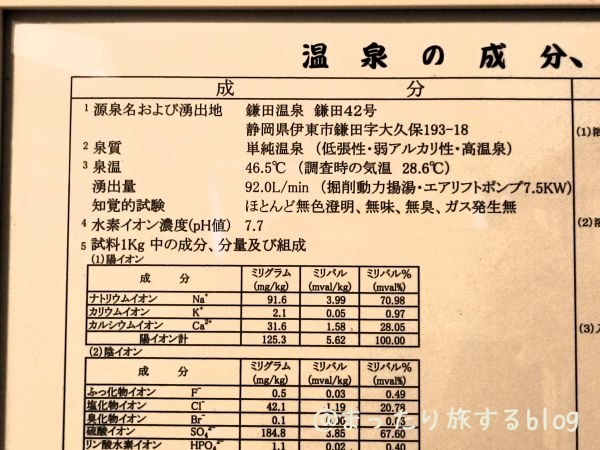 温泉の成分、
成 分
1 源泉名および湧出地 鎌田温泉 鎌田42号
静岡県伊東市鎌田字大久保193-18
2 泉質 単純温泉 (低張性・弱アルカリ性・高温泉)
3 泉温 46.5℃ (調査時の気温 28.6℃)
湧出量 92.0L/min (掘削動力揚湯・エアリフトポンプ7.5KW)
知覚的試験 ほとんど無色澄明、無味、無臭、ガス発生無
4 水素イオン濃度(pH値) 7.7
5 試料1Kg 中の成分、分量及び組成
(1)陽イオン
成 分 ミリグラム (mg/kg) ミリバル (mval/kg) ミリバル% (mval%)
ナトリウムイオン Na⁺ 91.6 3.99 70.98
カリウムイオン K⁺ 2.1 0.05 0.97
カルシウムイオン Ca²⁺ 31.6 1.58 28.05
陽イオン計 125.3 5.62 100.00
(2)陰イオン
成 分 ミリグラム (mg/kg) ミリバル (mval/kg) ミリバル% (mval%)
ふっ化物イオン F⁻ 0.5 0.03 0.49
塩化物イオン Cl⁻ 42.1 1.19 20.78
臭化物イオン Br⁻ 0.1
硫酸イオン SO₄²⁻ 184.8 3.85 67.60
リン酸水素イオン HPO₄²⁻ 1.1 0.02 0.40
(1)
(2)
(3)
@まったり旅するblog